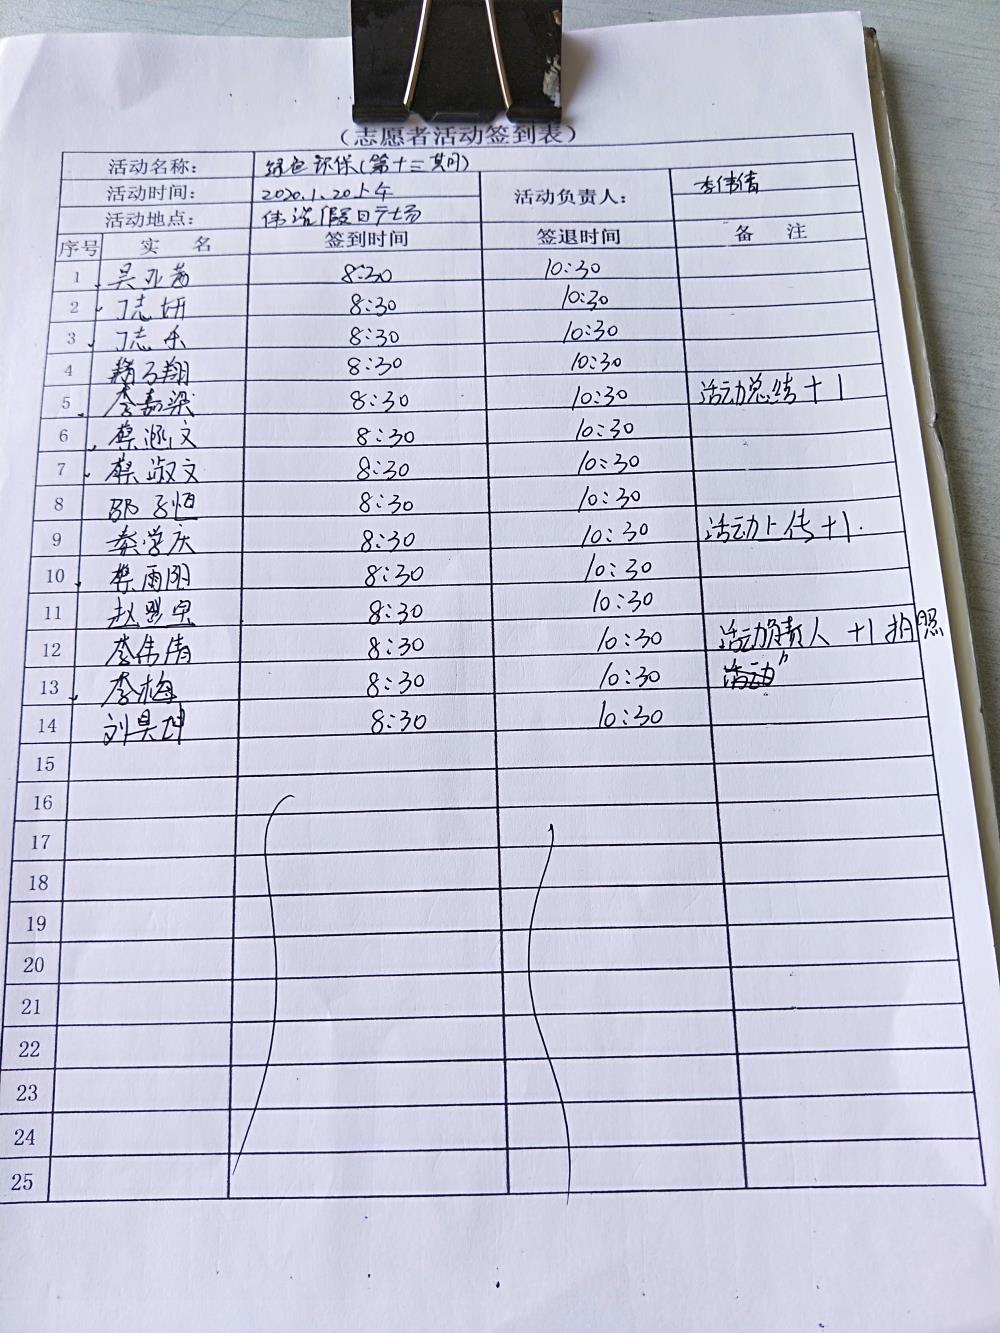 （志愿者活动签到表）
活动名称： 绿色环保(第十三期)
活动时间： 2020.1.20上午 活动负责人： 李伟倩
活动地点： 伟浩假日广场
序号 实 名 签到时间 签退时间 备 注
1 吴亚茜 8:30 10:30
2 丁志妍 8:30 10:30
3 丁志禾 8:30 10:30
4 翔 8:30 10:30
5 李嘉梁 8:30 10:30 活动总结+1
6 蔡涵文 8:30 10:30
7 蔡淑文 8:30 10:30
8 邵子恒 8:30 10:30
9 秦学庆 8:30 10:30 活动上传+1.
10 蔡雨阳 8:30 10:30
11 赵 8:30 10:30
12 李伟倩 8:30 10:30 活动负责人 +1 拍照
13 李梅 8:30 10:30 活动
14 刘昊坤 8:30 10:30
15
16
17
18
19
20
21
22
23
24
25